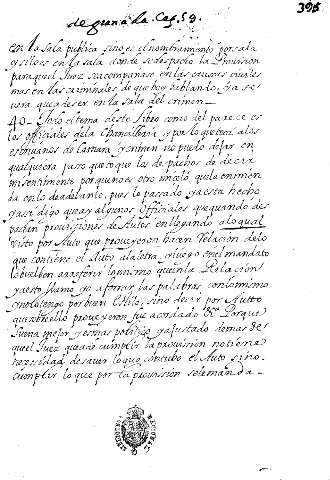 de granada Cap. 53.
395
en la sala publica sino es el nombramiento por sala
y si lo es en la sala donde se despacho la Provision
para quel Juez se acompanase en las causas civiles
mas en las criminales de que hoy hablando, ya se
vera que a de ser en la sala del crimen
40 - Todo el tema deste libro como del parece es
los officiales de la Chancilleria y por lo que toca a los
escrivanos de Camara y crimen no puedo dejar en
qualquiera passo que toque los despachos de decir
mi sentimiento porque no es otro mi
da en lo de adelante, pues lo passado ya esta hecho
y assi digo que ay algunos officiales que quando des
pachan provissiones de Autos en llegando a lo qual
visto por Auto que proveyeron hacen Relacion de lo
que contiene el Auto a la letra, y luego en el mandato
lo buelben a referir lo mismo que en la Relacion
y a esto llamo yo aforrar las palabras, con lo mismo
no lo tengo por buen estilo, sino decir por Autto
que sobre ello proveyeron fue acordado &c. Porque
suena mejor y es mas politico y ajustado demas de
que el Juez que a de cumplir la provission no tiene
necesidad de saver lo que contubo el Auto sino
cumplir lo que por la provission se le manda -